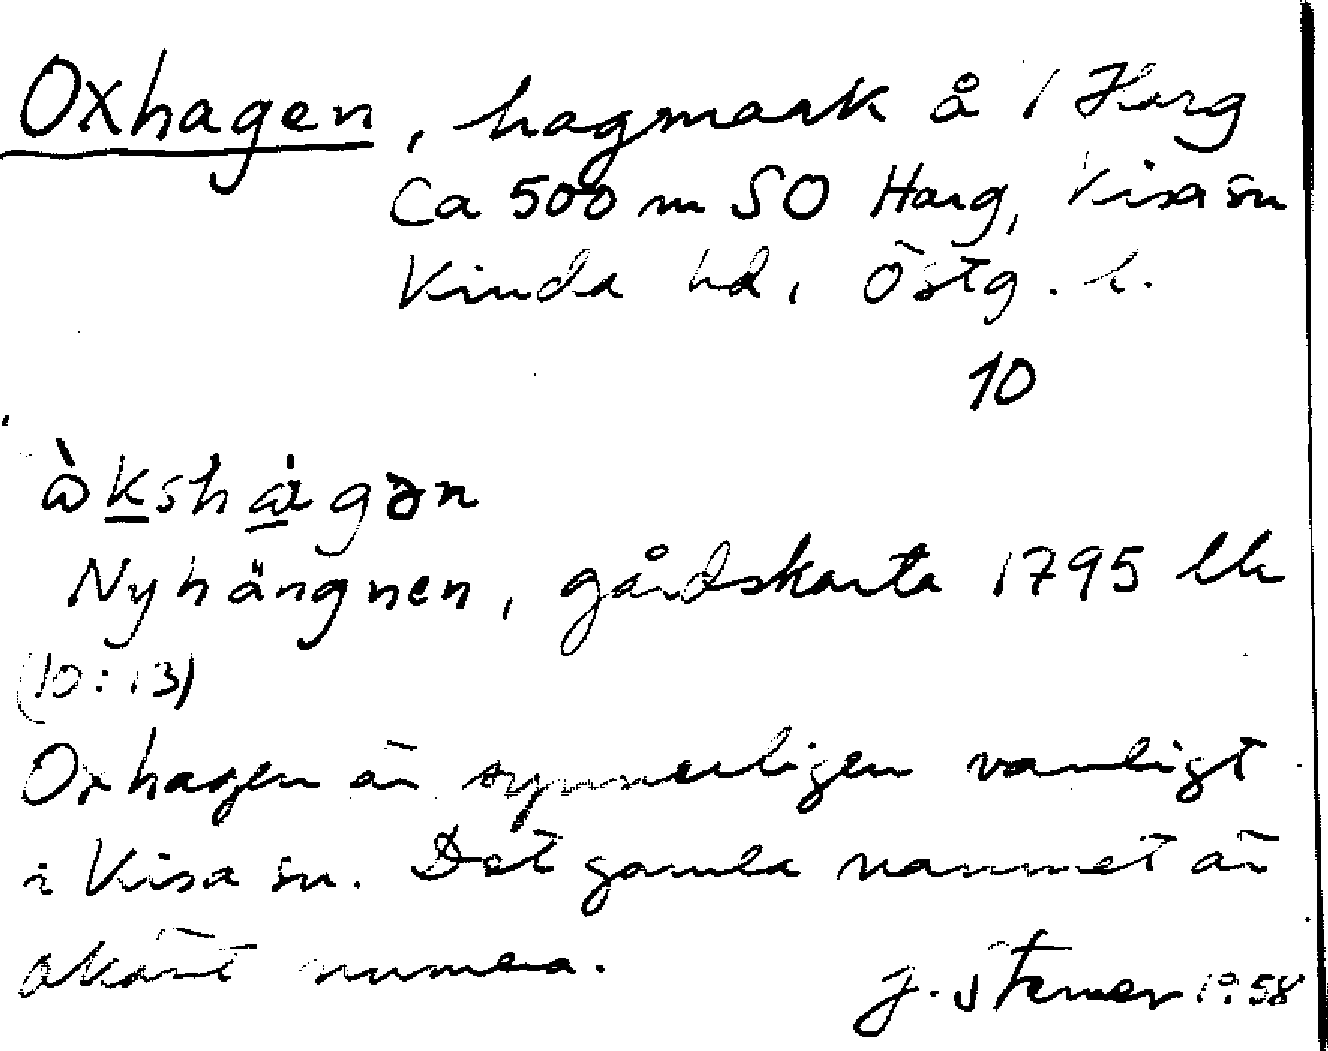 Oxhagen, hagmark å 1 Harg
Ca 500 m SO Harg, Kisa sn
Kinda hd, Östg. l.
10
òkshàgən
Nyhängnen, gårdskarta 1795 lk
(10:13)
Oxhagen är synnerligen vanligt
i Kisa sn. Det gamla namnet är
okänt numera.
J. Sterner 1958